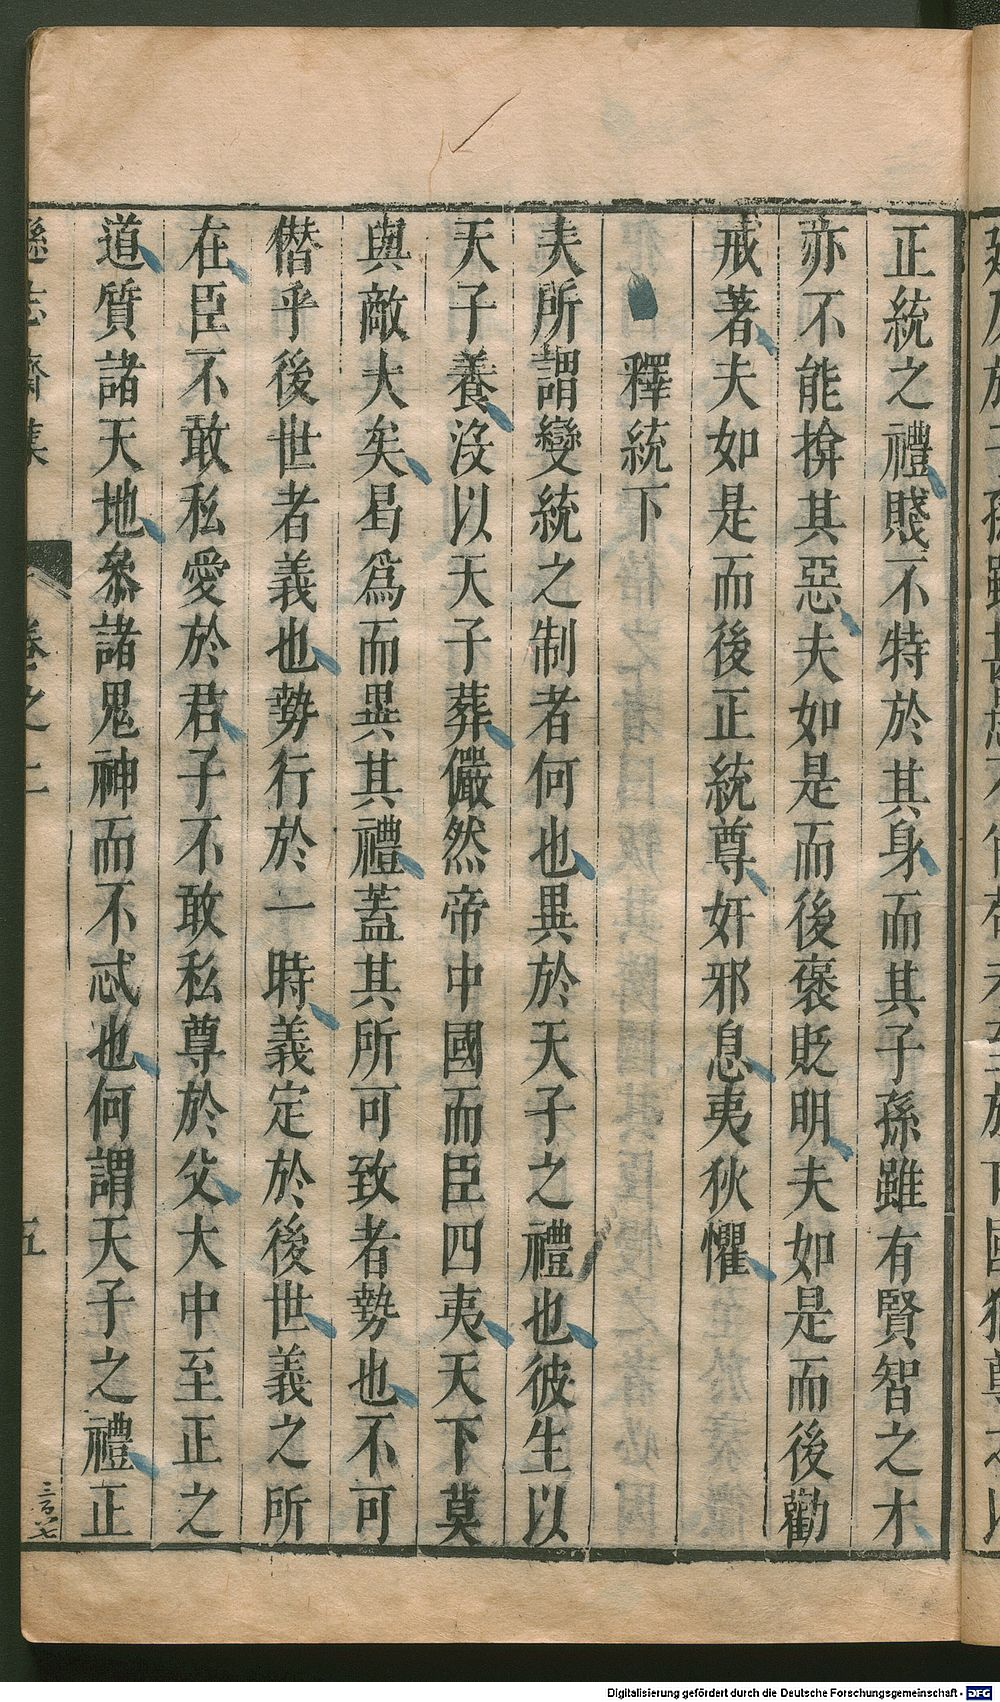 正統之禮賤不特於其身而其子孫雖有賢智之才
亦不能揜其惡夫如是而後褒貶明夫如是而後勸
戒著夫如是而後正統尊奸邪息夷狄懼
釋統下
夫所謂變統之制者何也異於天子之禮也彼生以
天子養沒以天子葬儼然帝中國而臣四夷天下莫
與敵大矣曷為而異其禮蓋其所可致者勢也不可
僭乎後世者義也勢行於一時義定於後世義之所
在臣不敢私愛於君子不敢私尊於父大中至正之
道質諸天地參諸鬼神而不忒也何謂天子之禮正
遜志齋集
卷之二
五
三百六七
Digitalisierung gefördert durch die Deutsche Forschungsgemeinschaft - DFG